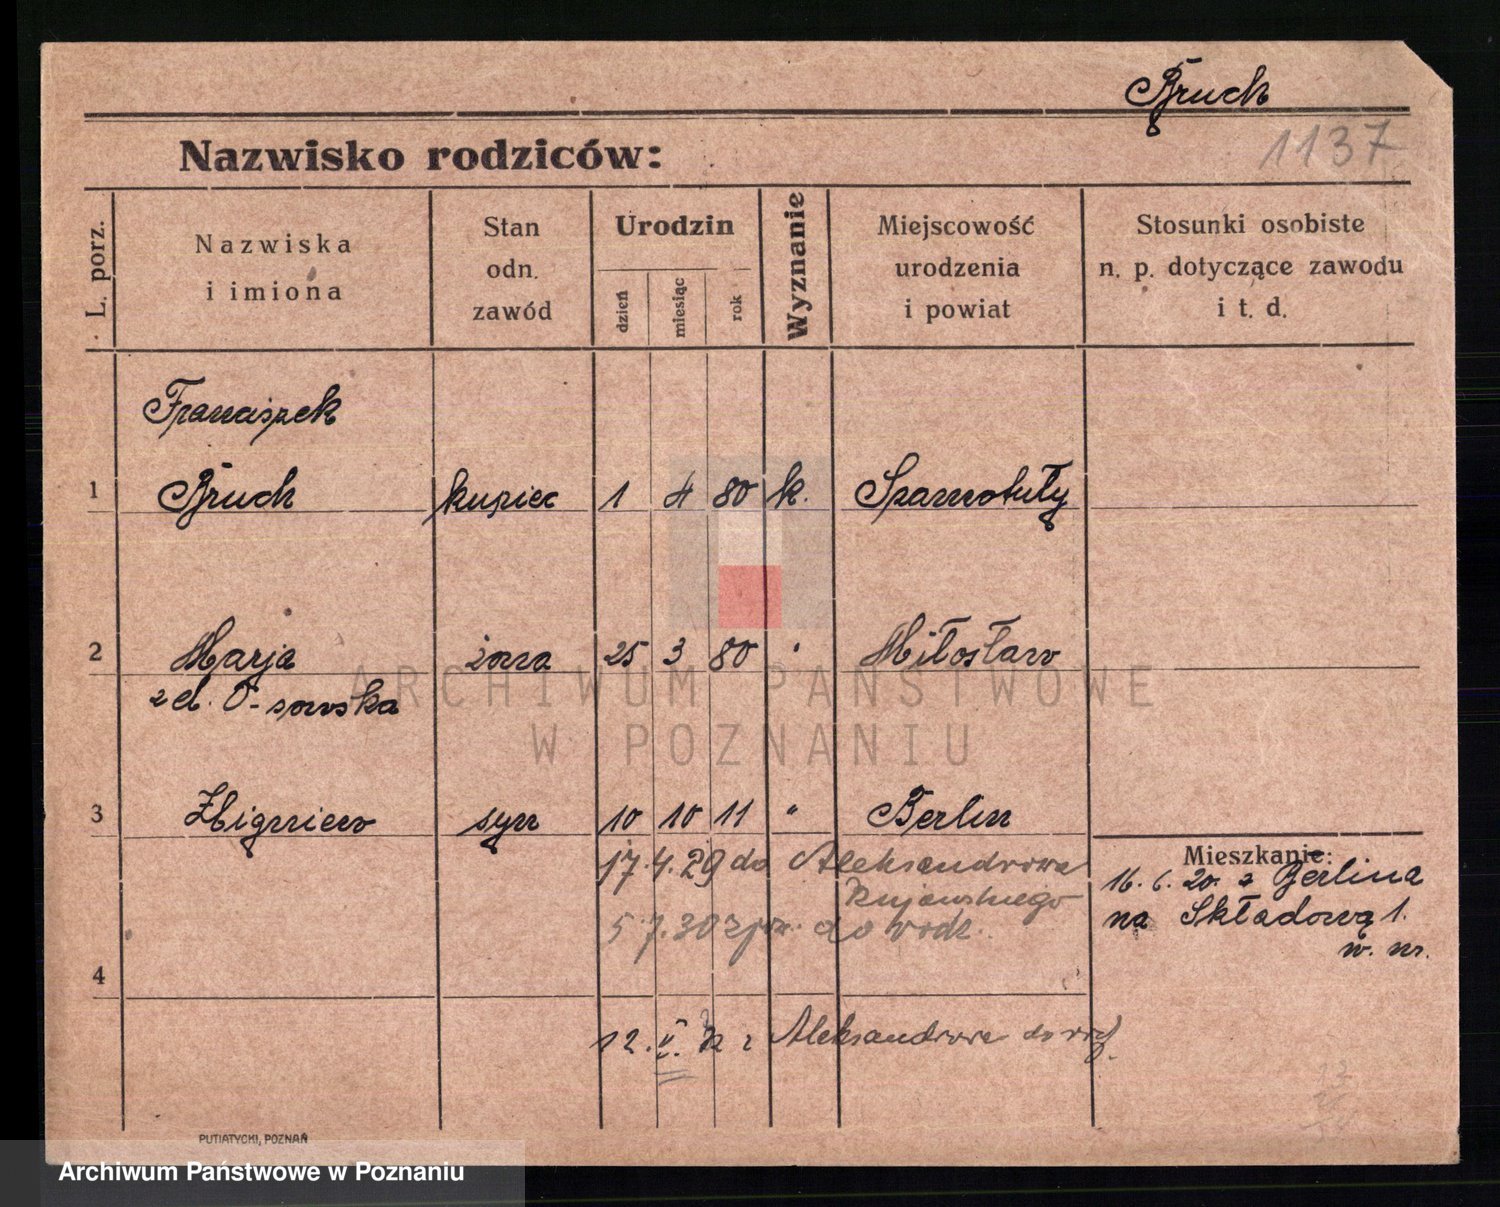 Bruch
1137
Nazwisko rodziców:
L. porz.
Nazwiska
i imiona
Stan
odn.
zawód
Urodzin
dzień
miesiąc
rok
Wyznanie
Miejscowość
urodzenia
i powiat
Stosunki osobiste
n. p. dotyczące zawodu
i t. d.
Franciszek
1 Bruch kupiec 1 4 80 k. Szamotuły
2 Marja żona 25 3 80 " Miłosław
z d. Ossowska
3 Zbigniew syn 10 10 11 " Berlin
17.4.29 do Aleksandrowa
Kujawskiego
5 7.30 do rodz.
Mieszkanie:
16. 6. 20. z Berlina
na Składową 1.
w. nr.
4
12. V. z Aleksandrowa do
PUTIATYCKI, POZNAŃ
ARCHIWUM PAŃSTWOWE
W POZNANIU
Archiwum Państwowe w Poznaniu